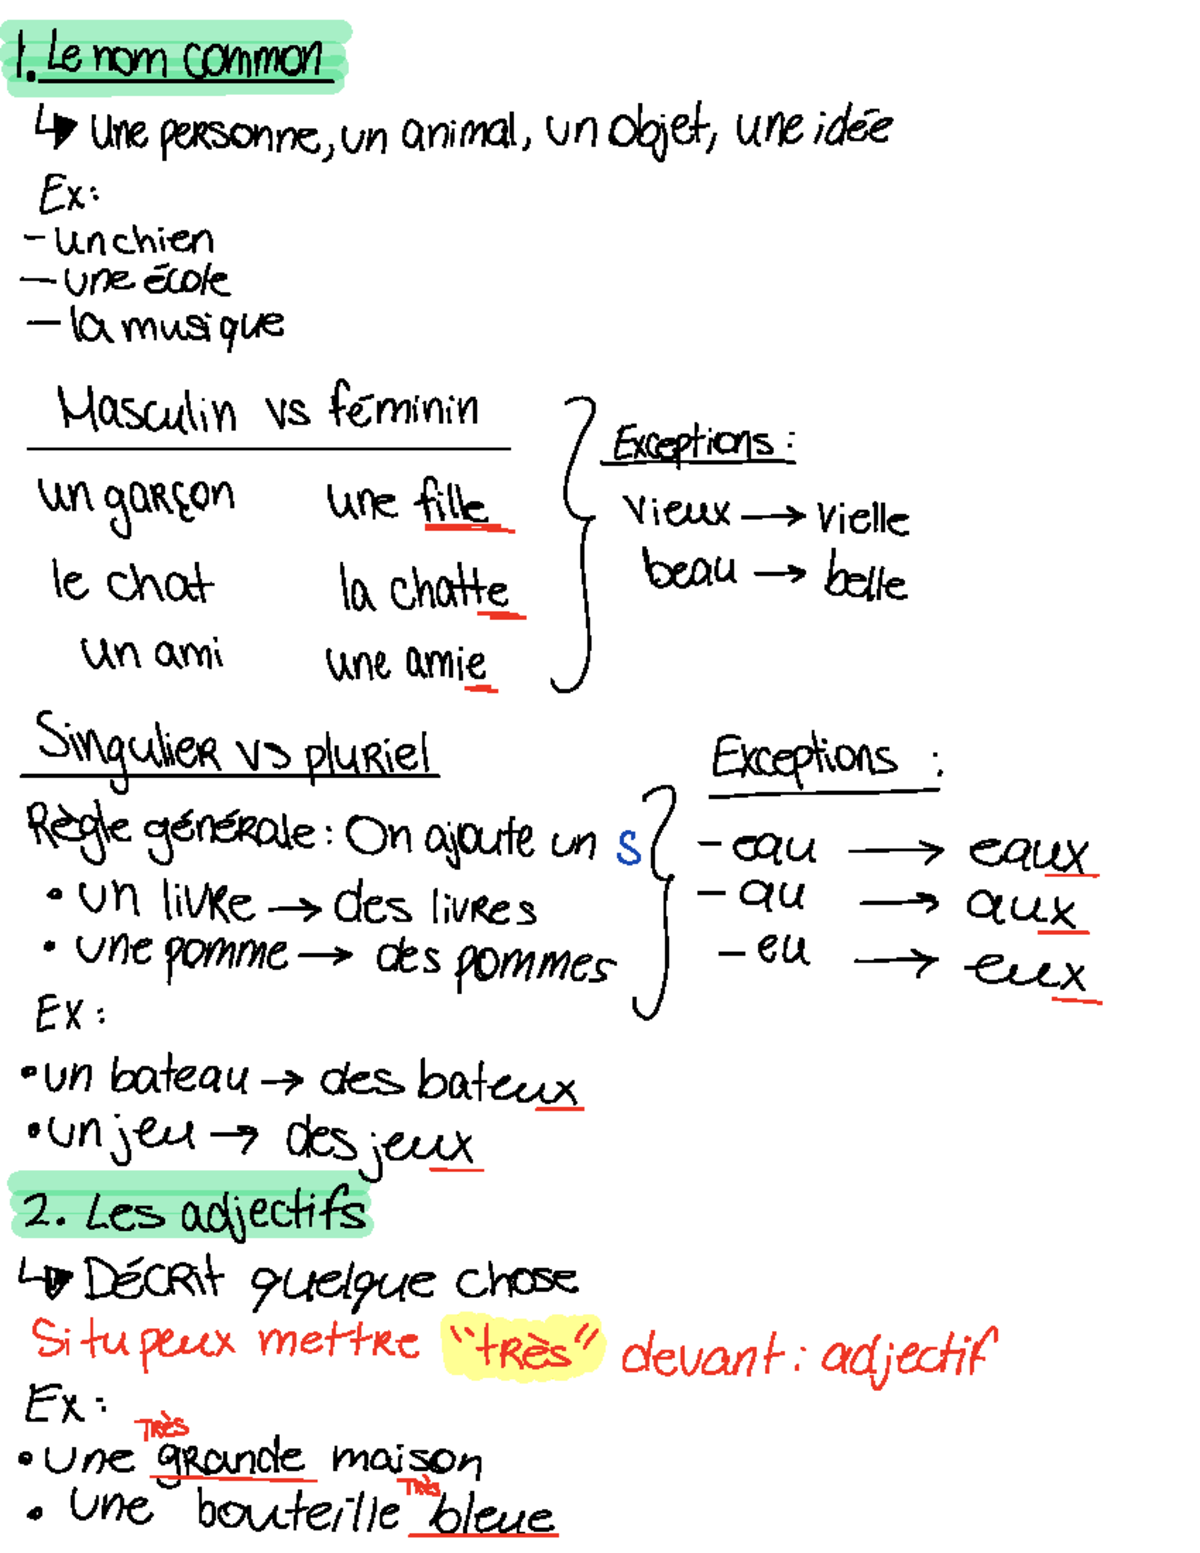 1. Le nom common
↳ Une personne, un animal, un objet, une idée
Ex:
- un chien
- une école
- la musique
Masculin vs féminin
un garçon une fille
le chat la chatte
un ami une amie
Exceptions :
vieux → vielle
beau → belle
Singulier vs pluriel
Règle générale : On ajoute un s
• un livre → des livres
• une pomme → des pommes
Exceptions :
- eau → eaux
- au → aux
- eu → eux
Ex :
• un bateau → des bateux
• un jeu → des jeux
2. Les adjectifs
↳ Décrit quelque chose
Si tu peux mettre "très" devant : adjectif
Ex :
Très
• une grande maison
Très
• une bouteille bleue